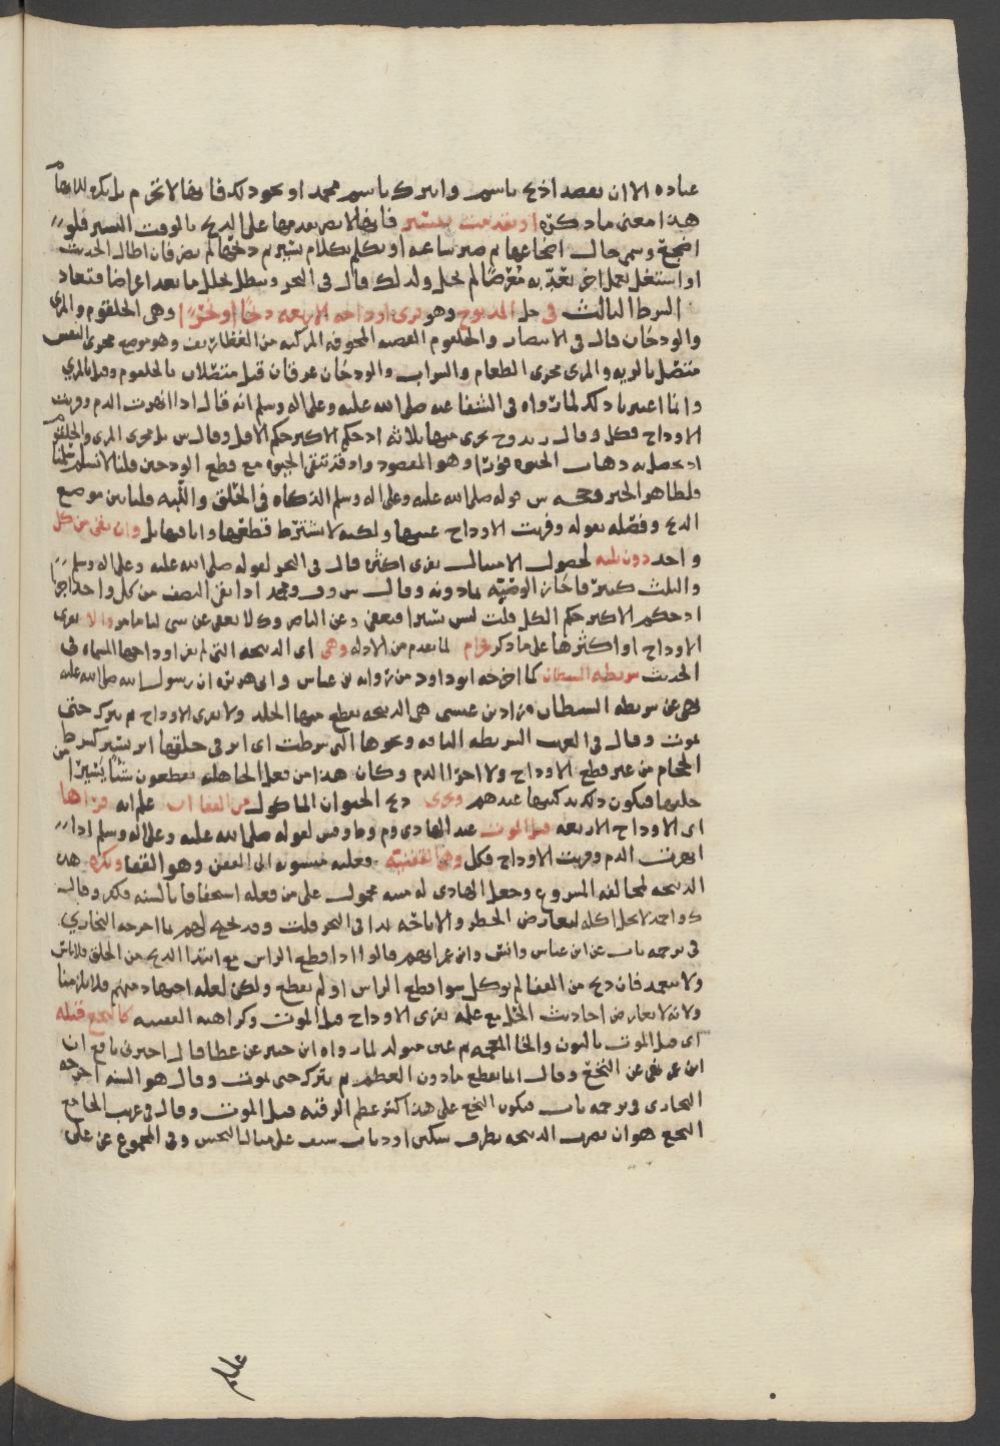 عباده الا ان يقصد اذبح باسم واتبرك باسم محمد او نحو ذلك فانها لا تحرم بل يكره
هذا معنى ما ذكره او تقدمت بيسير فانه لا يضر تقدمها على الذبح بالوقت اليسير فلو
اضجع وسمى حال اضجاعها ثم صبر ساعه او تكلم بكلام يسير ثم ذبحها لم يضر فان اطال الحديث
او اشتغل بعمل اخر يعد به معرضا لم تحل ولذلك قال في البحر ويبطل بتخلل ما يعد اعراضا فتعاد
الشرط الثالث في حل المذبوح وهو فري اوداجه الاربعه ذبحا او نحرا وهي الحلقوم والمري
والودجان قال في الانتصار والحلقوم القصبه المجوفه المركبه من الغضاريف وهو موضع مجرى النفس
متصل بالريه والمري مجرى الطعام والشراب والودجان عرقان قيل متصلان بالحلقوم وقيل بالمري
وانما اعتبر ذلك لما رواه في الشفا عنه صلى الله عليه وعلى اله وسلم انه قال اذا انهرت الدم وفريت
الاوداج فكل وقال ... يجزي منها ثلاثه اذ حكم الاكثر حكم الاقل وقال س بل يجزي المري والحلقوم
اذ يحصل به ذهاب الحيوه فورا وهو المقصود واذ قد تبقى الحيوه مع قطع الودجين قلنا لا نسلم سلمنا
فلظاهر الخبر ... قوله صلى الله عليه وعلى اله وسلم الذكاه في الحلق واللبه قلنا بين موضع
الذبح وفصله بقوله وفريت الاوداج عينها ولكنه لا يشترط قطعها وابانتها بل وان بقي من كل
واحد دون ثلثه لحصول الامتثال بفري اكثره قال في البحر لقوله صلى الله عليه وعلى اله وسلم
والثلث كثير فاجاز الوصيه بما دونه وقال س وف ومحمد اذا بقي النصف من كل واحد اجزا
اذ حكم الاكثر حكم الكل قلت ليس يسيرا فيعفى وعن الناصر وك لا يعفى عن شي لنا ما مر والا تفرى
الاوداج او اكثرها على ما ذكر حرام لما تقدم من الادله وهي اي الذبيحه التي لم تفر اوداجها المسماه في
الحديث شريطه الشيطان كما اخرجه ابو داود من روايه بن عباس وابي هريره ان رسول الله صلى الله عليه
نهى عن شريطه الشيطان زاد بن عيسى هي الذبيحه يقطع منها الجلد ولا تفرى الاوداج ثم تترك حتى
تموت وقال في الغريب الشريطه الناقه ونحوها التي شرطت اي اثر في حلقها اثر يسير كشرط
الحجام من غير قطع الاوداج ولا اجرا الدم وكان هذا من فعل الجاهليه يقطعون شيئا يسيرا من
حلقها فيكون ذلك تذكيتها عندهم ويجزي ذبح الحيوان الماكول من القفا ان علم انه فراها
اي الاوداج الاربعه قبل الموت عند الهادي وم ... لقوله صلى الله عليه وعلى اله وسلم اذا
انهرت الدم وفريت الاوداج فكل وهي القفنيه فعليه منسوبه الى القفن وهو القفا وتكره هذه
الذبيحه لمخالفه المشروع وجعل الهادي له ميته محمول على من فعله استخفافا بالسنه فكفر وقال
ك واحمد لا يحل اكله لتعارض الحظر والاباحه لذا في البحر قلت وقد يحتج لهم بما اخرجه البخاري
في ترجمه باب عن ابن عباس وانس وابن عمر انهم قالوا اذا قطع الراس مع ابتدا الذبح من الحلق فلا باس
ولا يتعمد فان ذبح من القفا لم يوكل سوا قطع الراس او لم يقطع ولكن لعله اجتهاد منهم فلا يلزمنا
ولانه لا تعارض احاديث الحل مع علمه بفري الاوداج قبل الموت وكراهته القفنيه كالنخع قبله
اي قبل الموت بالنون والخا المعجمه ثم عين مهمله لما رواه ابن جريج عن عطا قال اخبرني نافع ان
ابن عمر نهى عن النخع وقال انما يقطع ما دون العظم ثم يترك حتى يموت وقال هو السنه اخرجه
البخاري في ترجمه باب فيكون النخع على هذا كسر عظم الرقبه قبل الموت وقال في غريب الجامع
النخع هو ان يضرب الذبيحه بطرف سكين او ذباب سيف على مثال النخس وفي المجموع عن علي